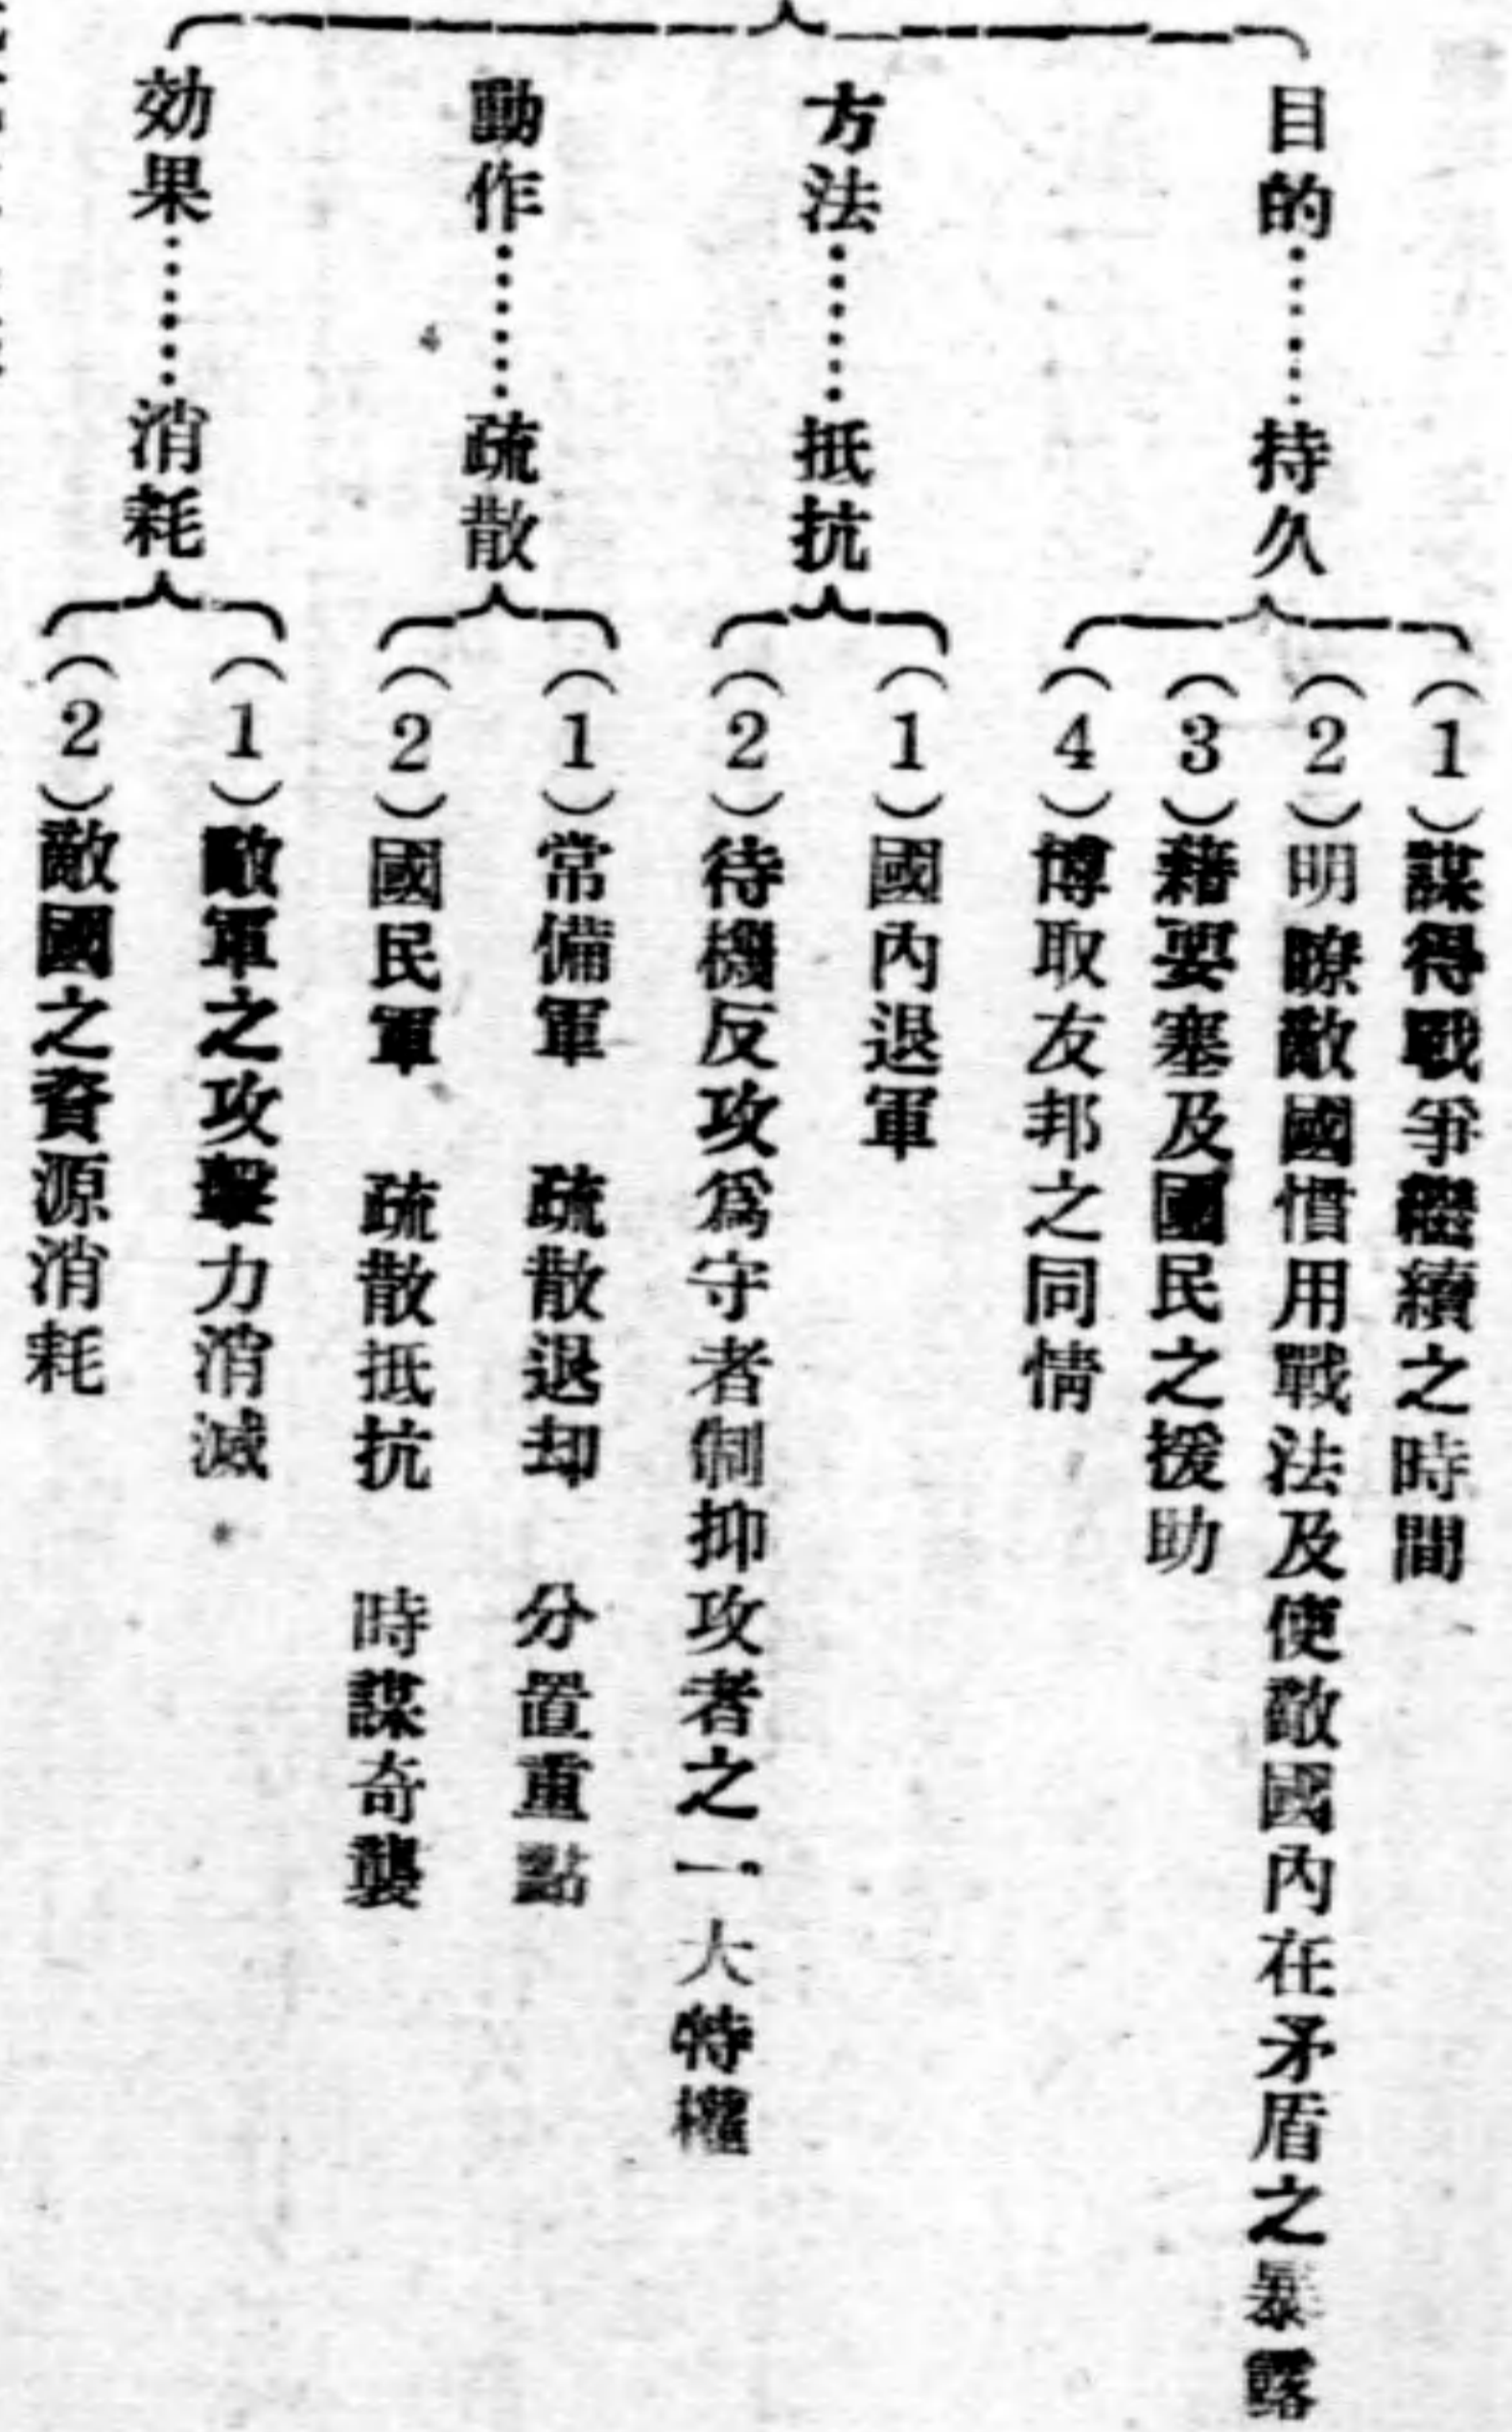 目的……持久
(1)謀得戰爭繼續之時間
(2)明瞭敵國慣用戰法及使敵國內在矛盾之暴露
(3)藉要塞及國民之援助
(4)博取友邦之同情
方法……抵抗
(1)國內退軍
(2)待機反攻爲守者制抑攻者之一大特權
動作……疏散
(1)常備軍 疏散退却 分置重點
(2)國民軍 疏散抵抗 時謀奇襲
効果……消耗
(1)敵軍之攻擊力消滅
(2)敵國之資源消耗